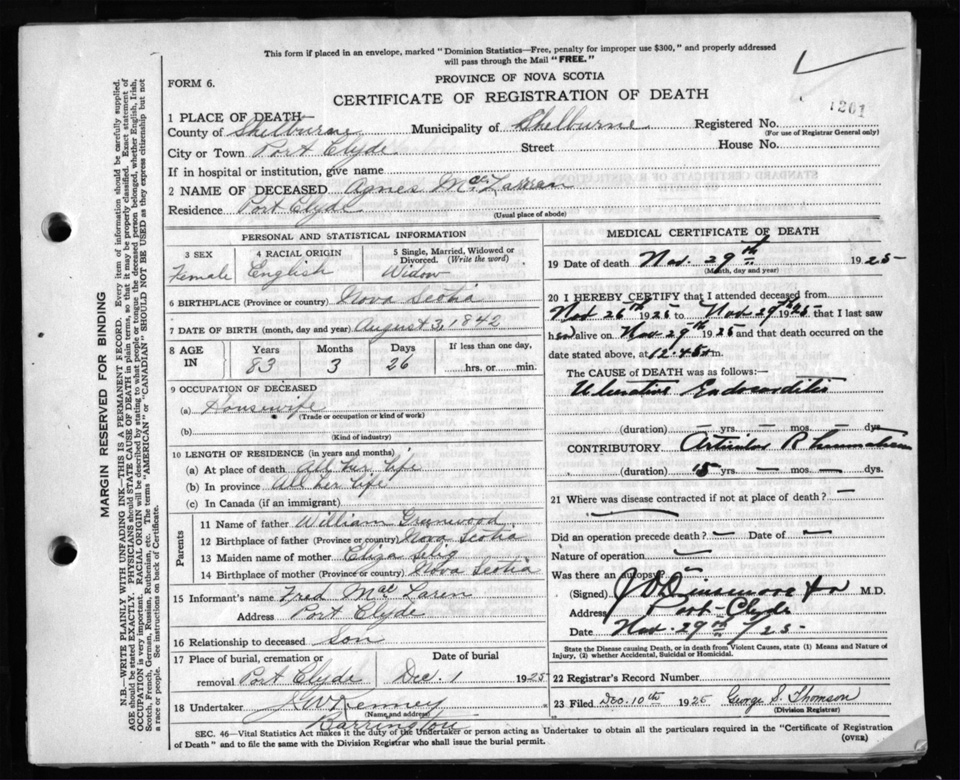 This form if placed in an envelope, marked "Dominion Statistics—Free, penalty for improper use $300," and properly addressed
will pass through the Mail "FREE."
FORM 6.
PROVINCE OF NOVA SCOTIA
CERTIFICATE OF REGISTRATION OF DEATH
1261
1 PLACE OF DEATH—
County of Shelburne Municipality of Shelburne Registered No.
(For use of Registrar General only)
City or Town Port Clyde Street House No.
If in hospital or institution, give name
2 NAME OF DECEASED Agnes McLaren
Residence Port Clyde
(Usual place of abode)
PERSONAL AND STATISTICAL INFORMATION
3 SEX 4 RACIAL ORIGIN 5 Single, Married, Widowed or
Divorced. (Write the word)
Female English Widow
6 BIRTHPLACE (Province or country) Nova Scotia
7 DATE OF BIRTH (month, day and year) August 3, 1842
8 AGE IN Years Months Days If less than one day,
83 3 26 hrs. or min.
9 OCCUPATION OF DECEASED
(a) Housewife
(Trade or occupation or kind of work)
(b)
(Kind of industry)
10 LENGTH OF RESIDENCE (in years and months)
(a) At place of death All her life
(b) In province All her life
(c) In Canada (if an immigrant)
Parents
11 Name of father William Greenwood
12 Birthplace of father (Province or country) Nova Scotia
13 Maiden name of mother Eliza
14 Birthplace of mother (Province or country) Nova Scotia
15 Informant's name Fred MacLaren
Address Port Clyde
16 Relationship to deceased son
17 Place of burial, cremation or Date of burial
removal Port Clyde Dec. 1 1925
18 Undertaker J W Kenney
(Name and address)
Barrington
MEDICAL CERTIFICATE OF DEATH
19 Date of death Nov. 29th 1925
(Month, day and year)
20 I HEREBY CERTIFY that I attended deceased from
Nov 26th 1925 to Nov 29th 1925 that I last saw
her alive on Nov 29th 1925 and that death occurred on
date stated above, at 12.45 m.
The CAUSE of DEATH was as follows:—
Ulcerative Endocarditis
(duration) yrs. mos. dys.
CONTRIBUTORY Articular Rheumatism
(duration) 15 yrs. — mos. — dys.
21 Where was disease contracted if not at place of death? —
Did an operation precede death? — Date of —
Nature of operation
Was there an autopsy? —
(Signed) Dinsmore M.D.
Address Port Clyde
Date Nov. 29th /25
State the Disease causing Death, or in death from Violent Causes, state (1) Means and Nature of
Injury, (2) whether Accidental, Suicidal or Homicidal.
22 Registrar's Record Number
23 Filed Dec. 10th 1925 George S. Thomson
(Division Registrar)
SEC. 46—Vital Statistics Act makes it the duty of the Undertaker or person acting as Undertaker to obtain all the particulars required in the "Certificate of Registration
of Death" and to file the same with the Division Registrar who shall issue the burial permit.
(OVER)
MARGIN RESERVED FOR BINDING
N.B.—WRITE PLAINLY WITH UNFADING INK—THIS IS A PERMANENT RECORD. Every item of information should be carefully supplied.
AGE should be stated EXACTLY. PHYSICIANS should STATE CAUSE OF DEATH in plain terms, so that it may be properly classified. Exact statement of
OCCUPATION is very important. RACIAL ORIGIN will be described by stating to what people or tongue the deceased person belonged, whether English, Irish,
Scotch, French, German, Russian, Ruthenian, etc. The terms "AMERICAN" or "CANADIAN" SHOULD NOT BE USED as they express citizenship but not
a race or people. See instructions on back of Certificate.